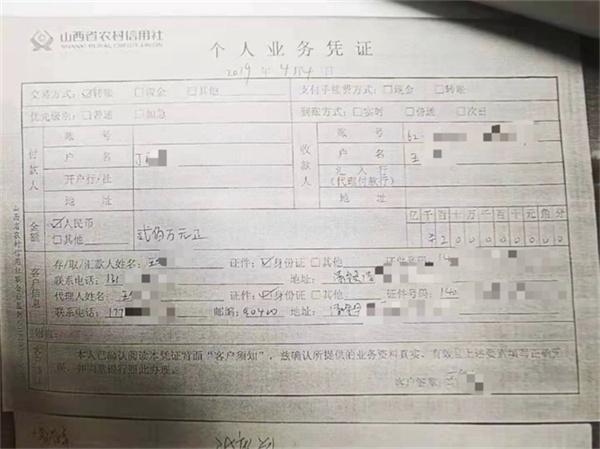 山西省农村信用社
SHANXI RURAL CREDIT UNION
个人业务凭证
2019年4月4日
交易方式:☑转账 □现金 □其他 支付手续费方式:□现金 □转账
优先级别:□普通 □加急 到账方式:□实时 □普通 □次日
付款人 账号 收款人 账号 62
户名 丁 户名 王
开户行/社 汇入行(代理付款行)
地址 地址
金额 ☑人民币 □其他 贰佰万元正 亿千百十万千百十元角分
¥200000000
客户信息
存/取/汇款人姓名:王 证件:☑身份证 □其他 证件号码:140
联系电话:131 地址:
代理人姓名:王 证件:☑身份证 □其他 证件号码:140
联系电话:177 邮编: 地址:
本人已确认阅读本凭证背面“客户须知”,兹确认所提供的业务资料真实、有效且上述要素填写正确无误,并同意银行照此办理。
客户签章: